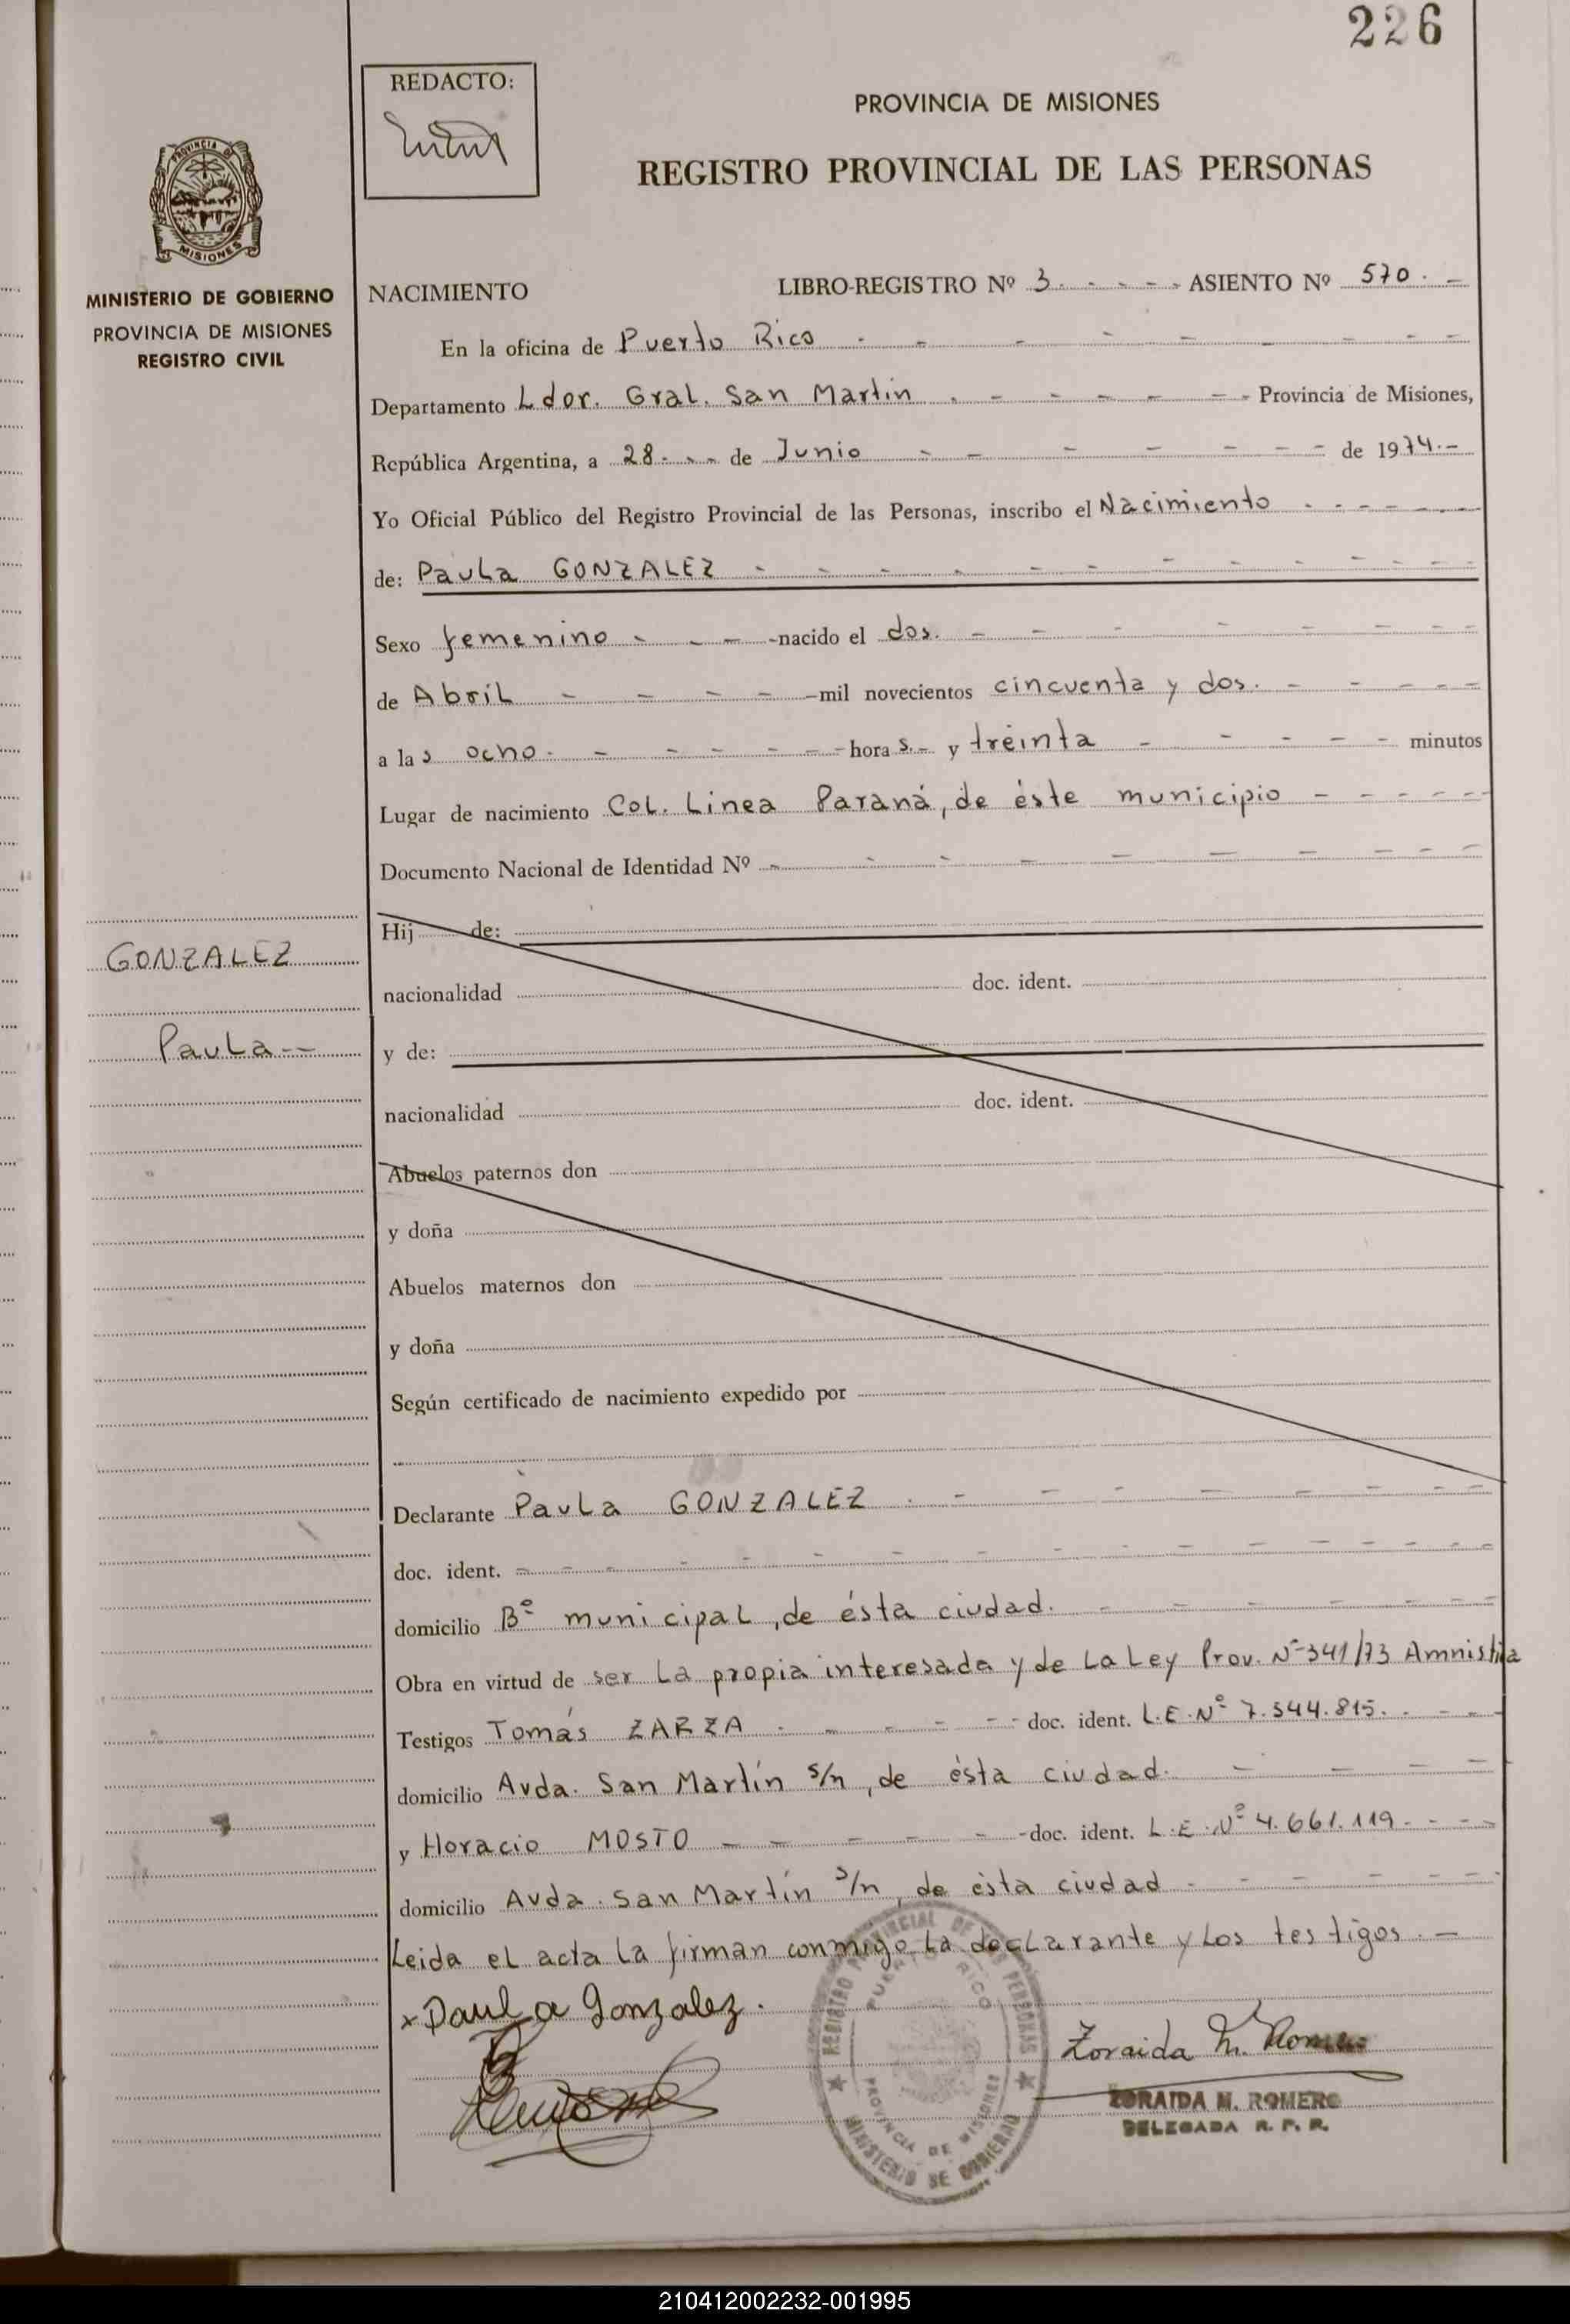 226
REDACTO:
PROVINCIA DE MISIONES
REGISTRO PROVINCIAL DE LAS PERSONAS
PROVINCIA DE
MISIONES
MINISTERIO DE GOBIERNO
PROVINCIA DE MISIONES
REGISTRO CIVIL
NACIMIENTO LIBRO-REGISTRO Nº 3 - - - - ASIENTO Nº 570. -
En la oficina de Puerto Rico - - - - - - - -
Departamento Ldor. Gral. San Martín . - - - - - - Provincia de Misiones,
República Argentina, a 28 - - - de Junio - - - - - - - - de 1974.-
Yo Oficial Público del Registro Provincial de las Personas, inscribo el Nacimiento - - - - -
de: Paula GONZALEZ - - - - - - - - - -
Sexo femenino - - - -nacido el dos. - - - - - - -
de Abril - - - - -mil novecientos cincuenta y dos. - - - - -
a las ocho. - - - - - - hora s.- y treinta - - - - - minutos
Lugar de nacimiento Col. Linea Paraná, de éste municipio - - - - - -
Documento Nacional de Identidad Nº - - - - - - - - - -
Hij de:
GONZALEZ
nacionalidad doc. ident.
Paula --
y de:
nacionalidad doc. ident.
Abuelos paternos don
y doña
Abuelos maternos don
y doña
Según certificado de nacimiento expedido por
Declarante Paula GONZALEZ . - - - - - - -
doc. ident. - - - - - - - - - - - -
domicilio Bº municipal, de ésta ciudad. - - - - - -
Obra en virtud de ser la propia interesada y de la Ley Prov. Nº 341/73 Amnistia
Testigos Tomás ZARZA - - - - - - doc. ident. L.E.Nº 7.544.815. - - - -
domicilio Avda. San Martín s/n, de ésta ciudad. - - - -
y Horacio MOSTO - - - - - -doc. ident. L.E.Nº 4.661.119 - - - -
domicilio Avda. San Martín s/n, de ésta ciudad - - - - - -
Leida el acta la firman conmigo la declarante y los testigos. -
x Paula Gonzalez.
REGISTRO PROVINCIAL DE LAS PERSONAS
PUERTO RICO
PROVINCIA DE MISIONES
MINISTERIO DE GOBIERNO
Zoraida M. Romero
ZORAIDA M. ROMERO
DELEGADA R. P. P.
210412002232-001995